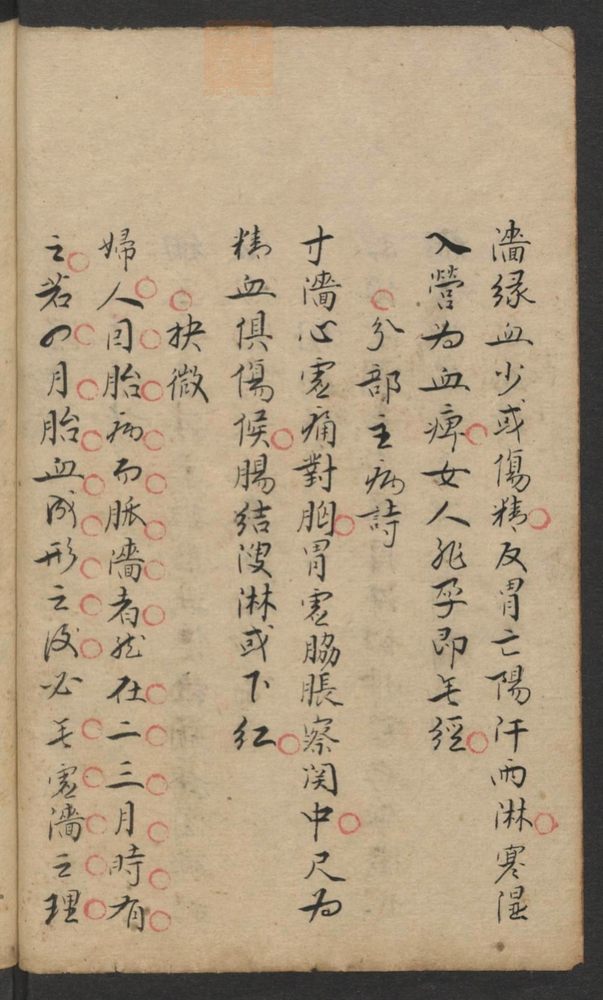 濇緣血少或傷精反胃亡陽汗雨淋寒濕
入營為血痺女人非孕即無經
分部主病詩
寸濇心虛痛對胸胃虛脇脹察関中尺為
精血俱傷候腸結溲淋或下紅
抉微
婦人因胎病而脈濇者然在二三月時有
之若四月胎血成形之後必無虛濇之理